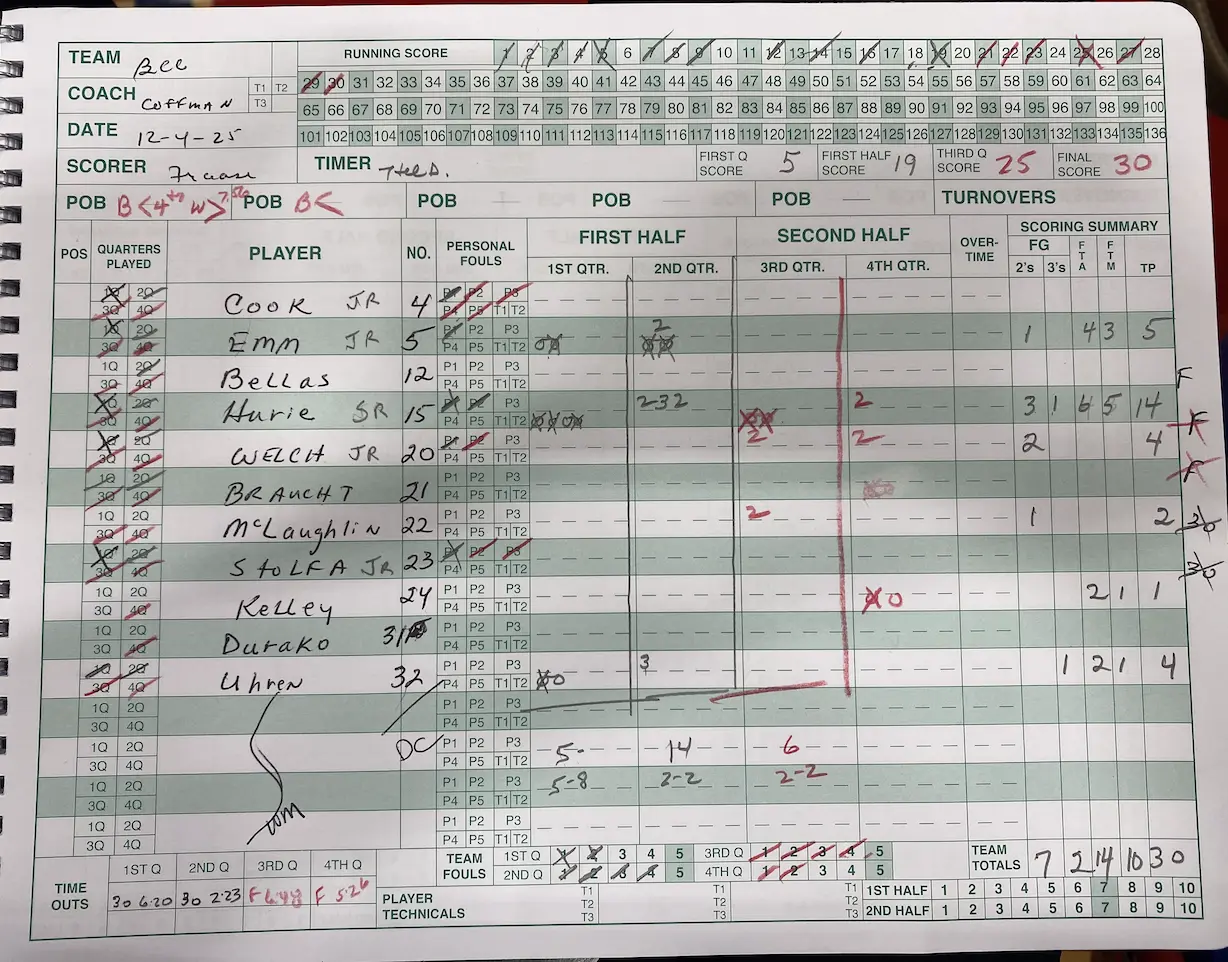 TEAM Bee
RUNNING SCORE 1 2 3 4 5 6 7 8 9 10 11 12 13 14 15 16 17 18 19 20 21 22 23 24 25 26 27 28
COACH Coffman T1 T2 T3
29 30 31 32 33 34 35 36 37 38 39 40 41 42 43 44 45 46 47 48 49 50 51 52 53 54 55 56 57 58 59 60 61 62 63 64
65 66 67 68 69 70 71 72 73 74 75 76 77 78 79 80 81 82 83 84 85 86 87 88 89 90 91 92 93 94 95 96 97 98 99 100
DATE 12-4-25
101 102 103 104 105 106 107 108 109 110 111 112 113 114 115 116 117 118 119 120 121 122 123 124 125 126 127 128 129 130 131 132 133 134 135 136
SCORER TIMER FIRST Q SCORE 5 FIRST HALF SCORE 19 THIRD Q SCORE 25 FINAL SCORE 30
POB B< 4th W> POB B< POB — POB — POB — TURNOVERS
POS QUARTERS PLAYED PLAYER NO. PERSONAL FOULS FIRST HALF SECOND HALF OVER-TIME SCORING SUMMARY
1ST QTR. 2ND QTR. 3RD QTR. 4TH QTR. FG 2's 3's FTA FTM TP
1Q 2Q 3Q 4Q Cook JR 4 P1 P2 P3 P4 P5 T1 T2
1Q 2Q 3Q 4Q Emm JR 5 P1 P2 P3 P4 P5 T1 T2 2 1 4 3 5
1Q 2Q 3Q 4Q Bellas 12 P1 P2 P3 P4 P5 T1 T2 F
1Q 2Q 3Q 4Q Hurie SR 15 P1 P2 P3 P4 P5 T1 T2 2-32 2 3 1 6 5 14 F
1Q 2Q 3Q 4Q WELCH JR 20 P1 P2 P3 P4 P5 T1 T2 2 2 2 4 F
1Q 2Q 3Q 4Q BRAUCHT 21 P1 P2 P3 P4 P5 T1 T2
1Q 2Q 3Q 4Q McLaughlin 22 P1 P2 P3 P4 P5 T1 T2 2 1 2 30
1Q 2Q 3Q 4Q StoLFA JR 23 P1 P2 P3 P4 P5 T1 T2 30
1Q 2Q 3Q 4Q Kelley 24 P1 P2 P3 P4 P5 T1 T2 0 2 1 1
1Q 2Q 3Q 4Q Durako 31 P1 P2 P3 P4 P5 T1 T2
1Q 2Q 3Q 4Q Uhren 32 P1 P2 P3 P4 P5 T1 T2 0 3 1 2 1 4
1Q 2Q 3Q 4Q P1 P2 P3 P4 P5 T1 T2
1Q 2Q 3Q 4Q DC P1 P2 P3 P4 P5 T1 T2 5 14 6
1Q 2Q 3Q 4Q P1 P2 P3 P4 P5 T1 T2 5-8 2-2 2-2
1Q 2Q 3Q 4Q P1 P2 P3 P4 P5 T1 T2
TIME OUTS 1ST Q 2ND Q 3RD Q 4TH Q
30 6:20 30 2:23 F 6:48 F 5:26
TEAM FOULS 1ST Q 1 2 3 4 5 3RD Q 1 2 3 4 5
2ND Q 1 2 3 4 5 4TH Q 1 2 3 4 5
TEAM TOTALS 7 2 14 10 30
PLAYER TECHNICALS T1 T2 T3 T1 T2 T3 T1 T2 T3 T1 T2 T3
1ST HALF 1 2 3 4 5 6 7 8 9 10
2ND HALF 1 2 3 4 5 6 7 8 9 10